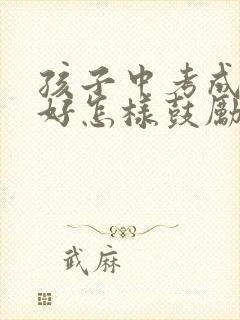 孩子中考成
好怎样鼓励
武麻